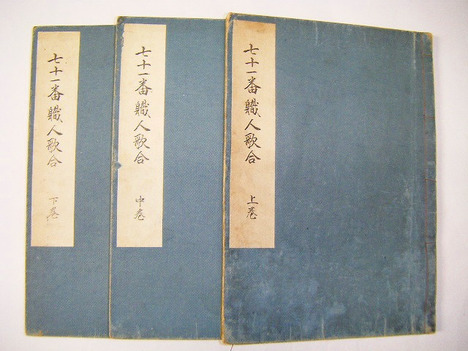 七十一番職人歌合
上巻
七十一番職人歌合
中巻
七十一番職人歌合
下巻